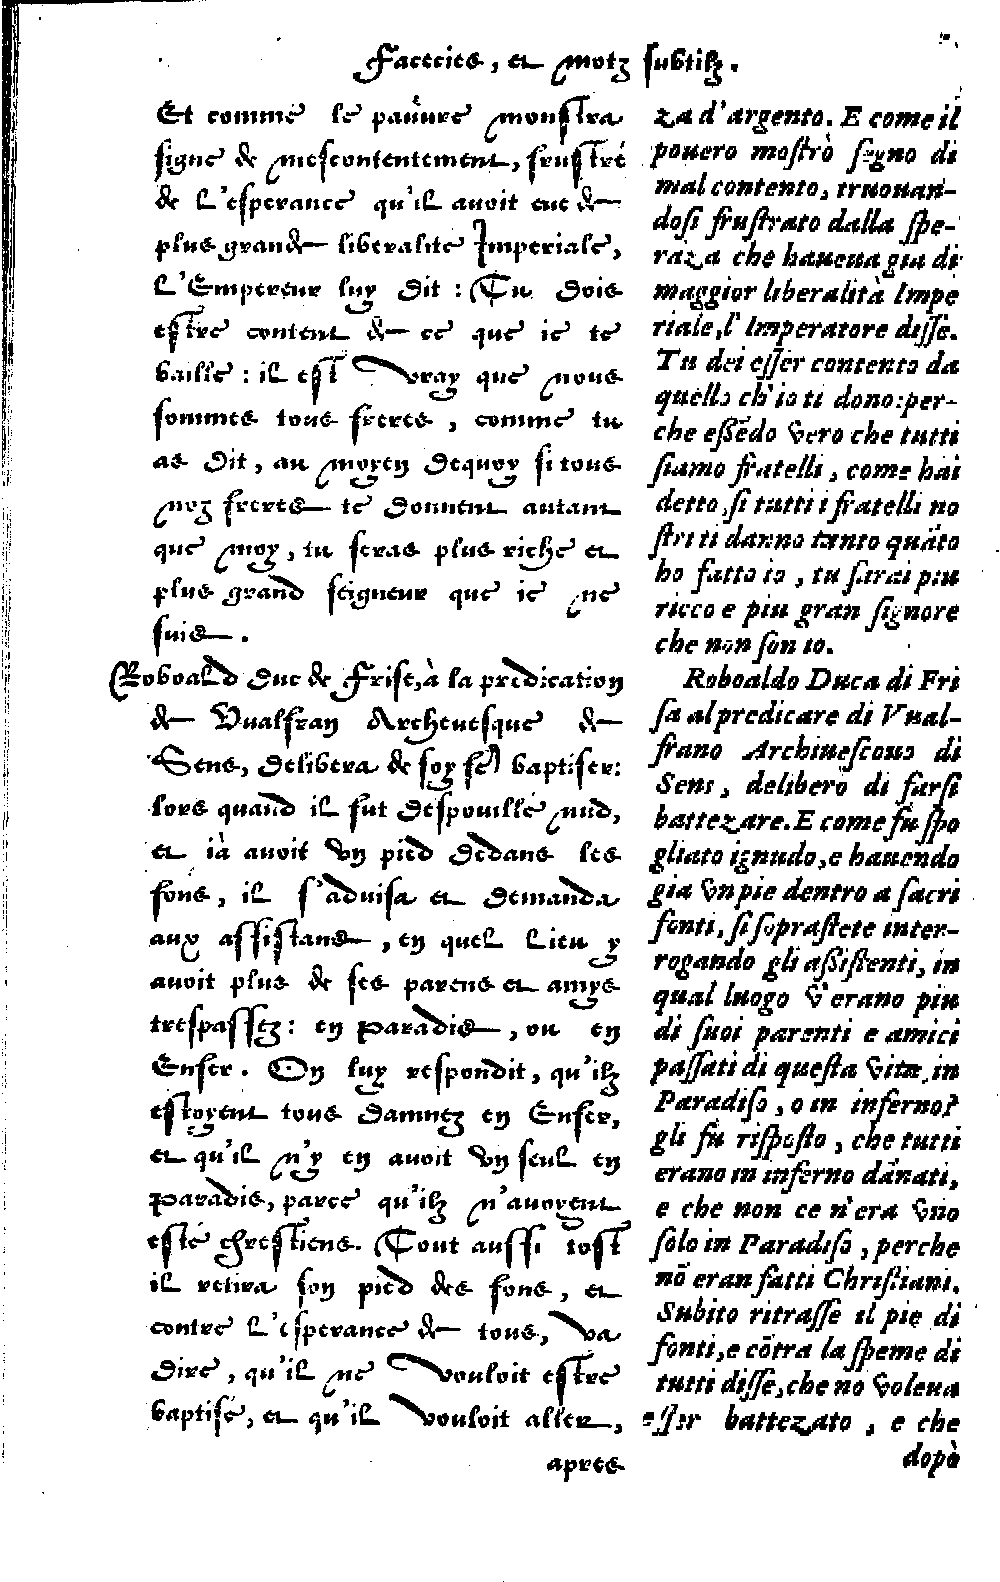 Facecies, et motz subtilz.
Et comme le pauure monstra
signe de mescontentement, frustré
de l'esperance qu'il auoit eue de
plus grande liberalité Imperiale,
L'Empereur luy dit : Tu dois
estre content de ce que ie te
baille : il est vray que nous
sommes tous freres, comme tu
as dit, au moyen dequoy si tous
noz freres te donnent autant
que moy, tu seras plus riche et
plus grand seigneur que ie ne
suis.
Roboald Duc de Frise, à la predication
de Vualfran Archeuesque de
Sens, delibera de soy fe baptiser:
lors quand il fut despouillé nud,
et ià auoit vn pied dedans les
fons, il s'aduisa et demanda
aux assistans, en quel lieu y
auoit plus de ses parens et amys
trespassez: en paradis, ou en
Enfer. On luy respondit, qu'ilz
estoyent tous damnez en Enfer,
et qu'il n'y en auoit vn seul en
paradis, parce qu'ilz n'auoyent
esté chrestiens. Tout aussi tost
il retira son pied des fons, et
contre l'esperance de tous, va
dire, qu'il ne vouloit estre
baptisé, et qu'il vouloit aller,
apres
za d'argento. E come il
pouero mostrò segno di
mal contento, truouan-
dosi frustrato dalla spe-
rāza che haueua gia di
maggior liberalità Impe
riale, l'Imperatore disse.
Tu dei esser contento da
quello ch'io ti dono: per-
che essēdo vero che tutti
siamo fratelli, come hai
detto, si tutti i fratelli no
stri ti danno tanto quāto
ho fatto io, tu sarai piu
ricco e piu gran signore
che non son io.
Roboaldo Duca di Fri
sa al predicare di Vual-
frano Archiuescouo di
Sens, deliberò di farsi
battezare. E come fù spo
gliato ignudo, e hauendo
gia vn pie dentro a sacri
fonti, si soprastete inter-
rogando gli assistenti, in
qual luogo v'erano piu
di suoi parenti e amici
passati di questa vita, in
Paradiso, o in inferno?
gli fù risposto, che tutti
erano in inferno dānati,
e che non ce n'era vno
solo in Paradiso, perche
nō eran fatti Christiani.
Subito ritrasse il pie di
fonti, e cōtra la speme di
tutti disse, che nō voleua
esser battezato, e che
dopò